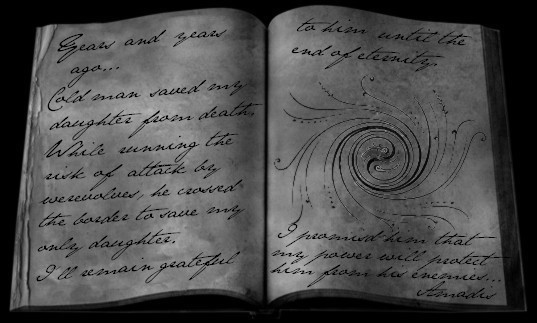 Years and years
ago...
Cold man saved my
daughter from death.
While running the
risk of attack by
werewolves, he crossed
the border to save my
only daughter.
I'll remain grateful
to him until the
end of eternity.
I promised him that
my power will protect
him from his enemies...
Amadis